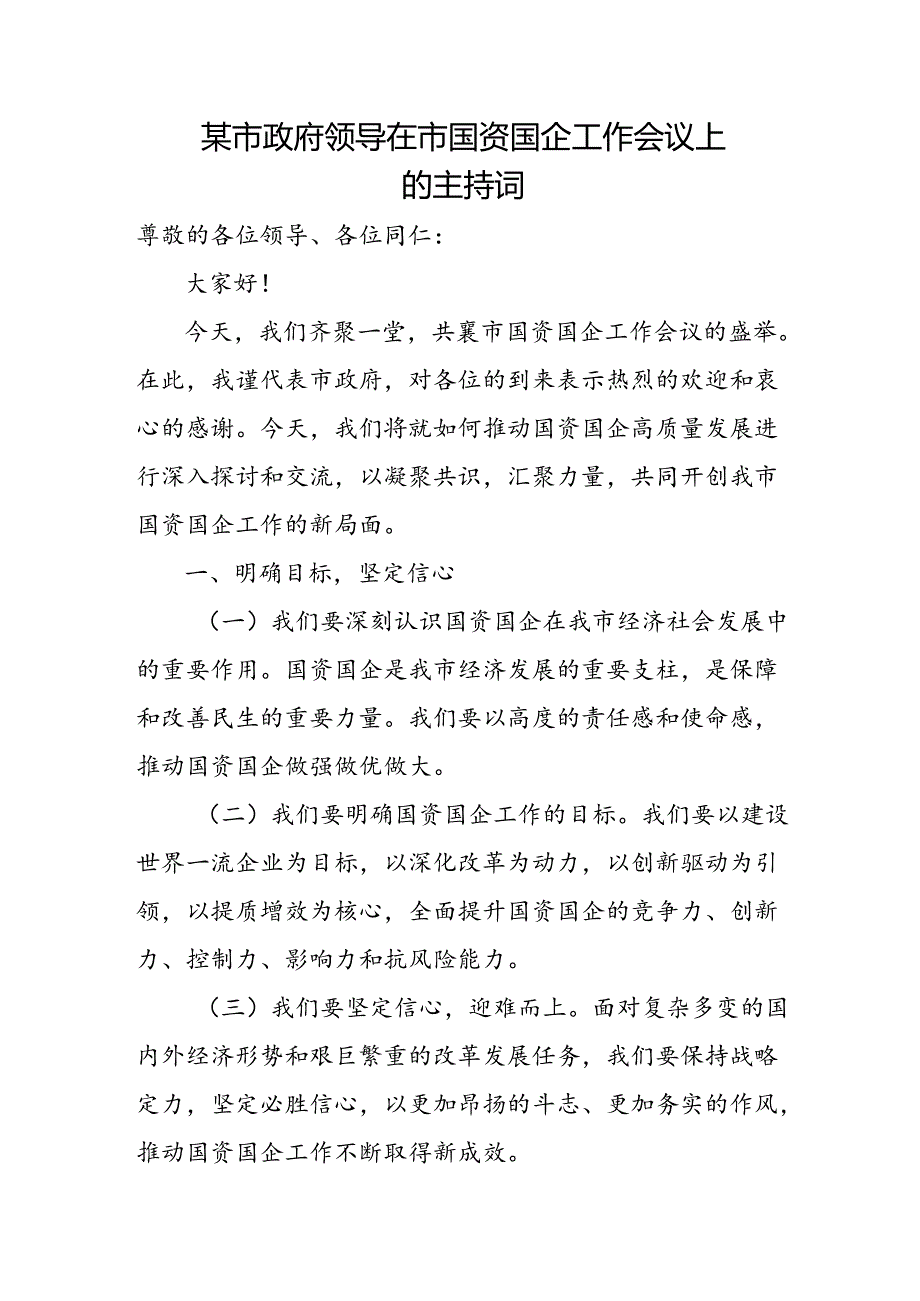 某市政府领导在市国资国企工作会议上
的主持词
尊敬的各位领导、各位同仁：
大家好！
今天，我们齐聚一堂，共襄市国资国企工作会议的盛举。
在此，我谨代表市政府，对各位的到来表示热烈的欢迎和衷
心的感谢。今天，我们将就如何推动国资国企高质量发展进
行深入探讨和交流，以凝聚共识，汇聚力量，共同开创我市
国资国企工作的新局面。
一、明确目标，坚定信心
（一）我们要深刻认识国资国企在我市经济社会发展中
的重要作用。国资国企是我市经济发展的重要支柱，是保障
和改善民生的重要力量。我们要以高度的责任感和使命感，
推动国资国企做强做优做大。
（二）我们要明确国资国企工作的目标。我们要以建设
世界一流企业为目标，以深化改革为动力，以创新驱动为引
领，以提质增效为核心，全面提升国资国企的竞争力、创新
力、控制力、影响力和抗风险能力。
（三）我们要坚定信心，迎难而上。面对复杂多变的国
内外经济形势和艰巨繁重的改革发展任务，我们要保持战略
定力，坚定必胜信心，以更加昂扬的斗志、更加务实的作风，
推动国资国企工作不断取得新成效。